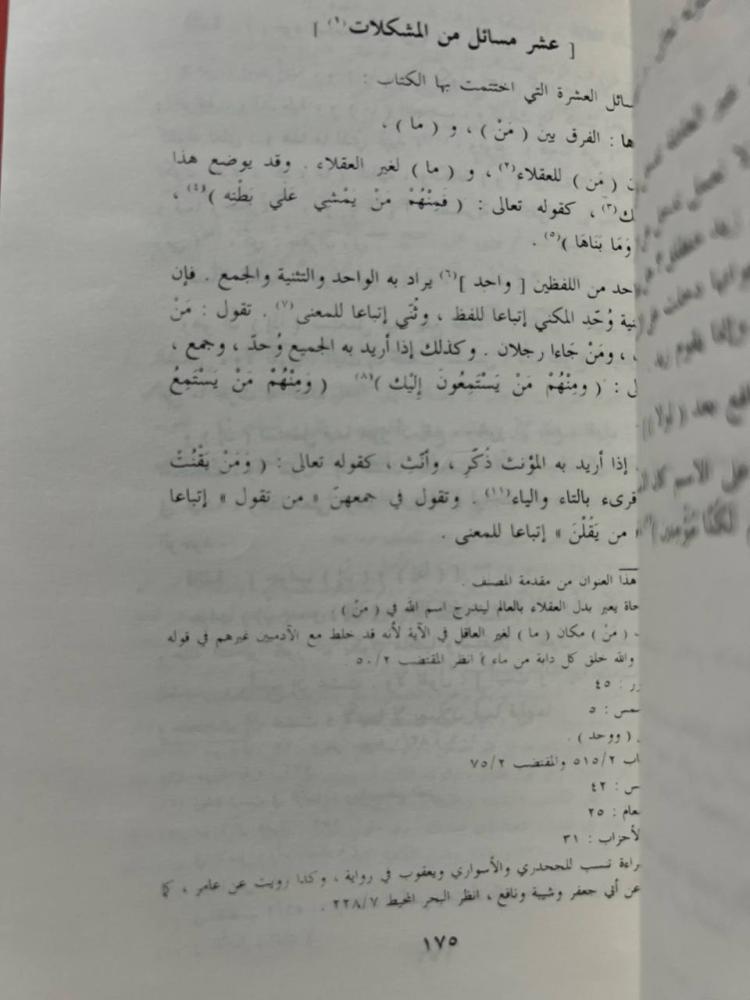 [ عشر مسائل من المشكلات(١) ]
سائل العشرة التي اختتمت بها الكتاب :
ها : الفرق بين ( مَنْ ) ، و ( ما ) .
( مَن ) للعقلاء(٢) ، و ( ما ) لغير العقلاء . وقد يوضع هذا
ك(٣) ، كقوله تعالى : ( فَمِنْهُمْ مَنْ يَمْشي عَلَي بَطْنِهِ )(٤) ،
وَمَا بَنَاهَا )(٥) .
حد من اللفظين [ واحد ](٦) يراد به الواحد والتثنية والجمع . فإن
نية وُحّد المكني إتباعا للفظ ، وثُنّي إتباعا للمعنى(٧) . تقول : مَنْ
، ومَنْ جَاءا رجلان . وكذلك إذا أريد به الجميع وُحدّ ، وجمع ،
لى : ( ومِنْهُمْ مَنْ يَسْتَمِعُونَ إِلَيْك )(٨) ( وَمِنْهُمْ مَنْ يَسْتَمِعُ
إذا أريد به المؤنث ذُكّرِ ، وأنّث ، كقوله تعالى : ( وَمَنْ يَقْنُتْ
قرىء بالتاء والياء(١١) . وتقول في جمعهنّ « من تقول » إتباعا
« من يَقُلْنَ » إتباعا للمعنى .
هذا العنوان من مقدمة المصنف .
حاة يعبر بدل العقلاء بالعالم ليندرج اسم الله في ( مَنْ )
( مَنْ ) مكان ( ما ) لغير العاقل في الآية لأنه قد خلط مع الآدميين غيرهم في قوله
والله خلق كل دابة من ماء ) انظر المقتضب ٥٠/٢
ور : ٤٥
مس : ٥
( ووحد ) .
اب ٥١٥/٢ والمقتضب ٧٥/٢
س : ٤٢
عام : ٢٥
لأحزاب : ٣١
راءة نسب للجحدري والأسواري ويعقوب في رواية ، وكذا رويت عن عامر ، كما
عن أبي جعفر وشيبة ونافع ، انظر البحر المحيط ٢٢٨/٧ .
١٧٥